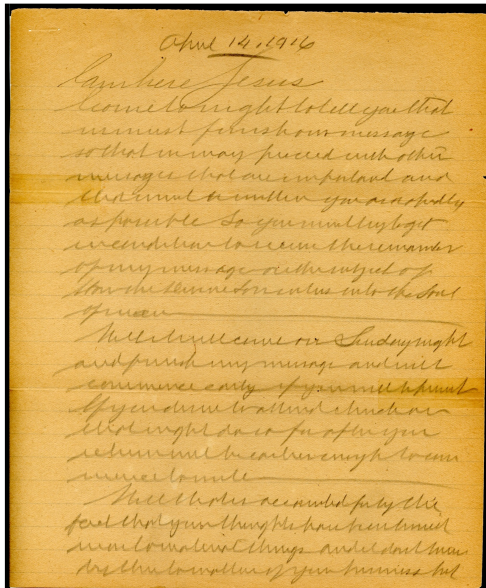 April 14, 1916
I am here Jesus
I come to night to tell you that
we must finish our message
so that we may proceed with other
messages that are important and
that must be written you as rapidly
as possible So you must try to get
in condition to receive the remainder
of my message on the subject of
How the Divine Love enters into the Soul
of man
Well I will come on Sunday night
and finish my message and will
commence early if you will be present
If you desire to attend church on
that night do so for after you
return will be early enough to com
mence to write
Well that is accounted for by the
fact that your thoughts have been turned
more to material things and I don't mean
by this to matters of your business but